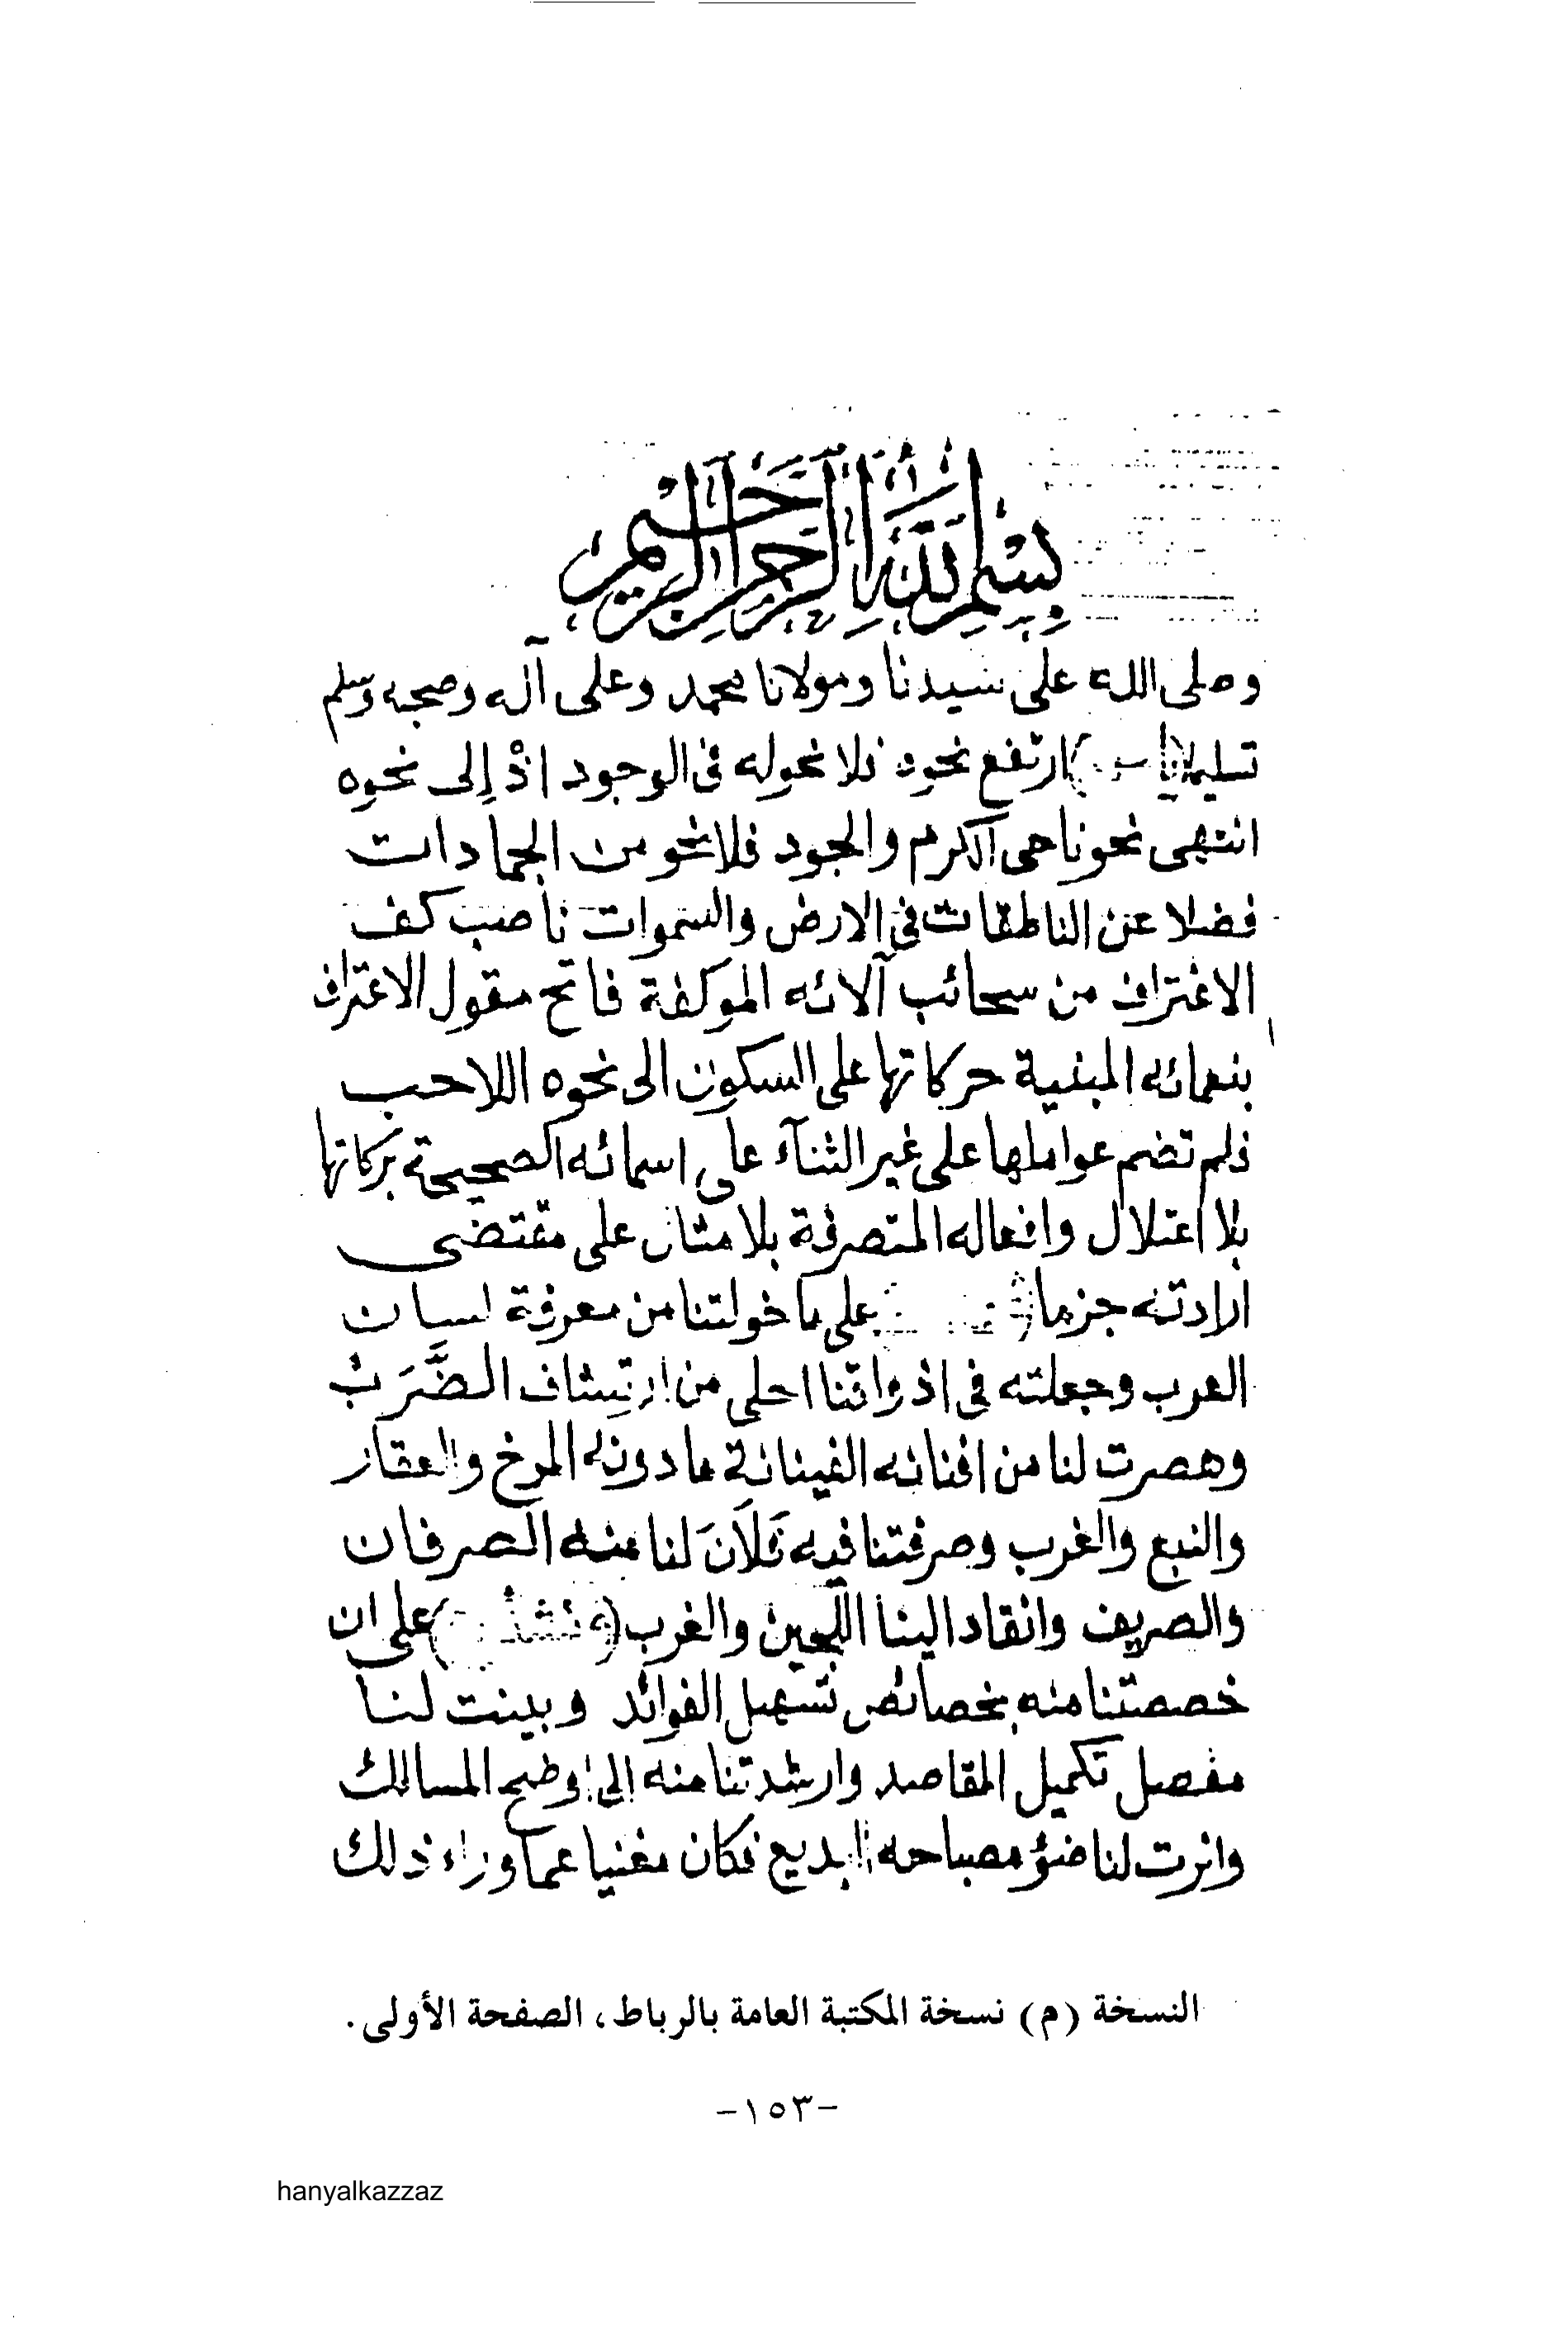 بسم الله الرحمن الرحيم
وصلى الله على سيدنا ومولانا محمد وعلى آله وصحبه وسلم
تسليما ارتفع نحوه فلا نحو له فى الوجود اذْ إلى نحوِه
انتهى نحو ناحى الكرم والجود فلا نحو من الجمادات
فضلا عن الناطقات فى الارض والسموات ناصب كف
الاغتراف من سحائب آلائه الموكفة فاتح مقول الاعتراف
بنعمائه المبنية حركاتها على السكون الى نحوه اللاحب
فلم تضم عواملها على غير الثنآء على اسمائه الصحيحة بركاتها
بلا اعتلال وافعاله المتصرفة بلا مثال على مقتضى
ارادته جزما على ما خولتنا من معرفة لسان
العرب وجعلته فى اذواقنا احلى من ارتِشاف الضَّرَب
وهصرت لنا من افنانه الفينانة ما دونه المرخ والعفار
والنبع والغرب وصرفتنا فيه فَلَانَ لنا منه الصرفان
والصريف وانقاد الينا اللجين والغرب على ان
خصصتنا منه بخصائص تسهيل الفوائد وبينت لنا
مفصل تكميل المقاصد وارشدتنا منه إلى اوضح المسالك
وانرت لنا ضوء مصباحه البديع فكان مغنيا عما وراء ذلك
النسخة (م) نسخة المكتبة العامة بالرباط، الصفحة الأولى.
-١٥٣-
hanyalkazzaz